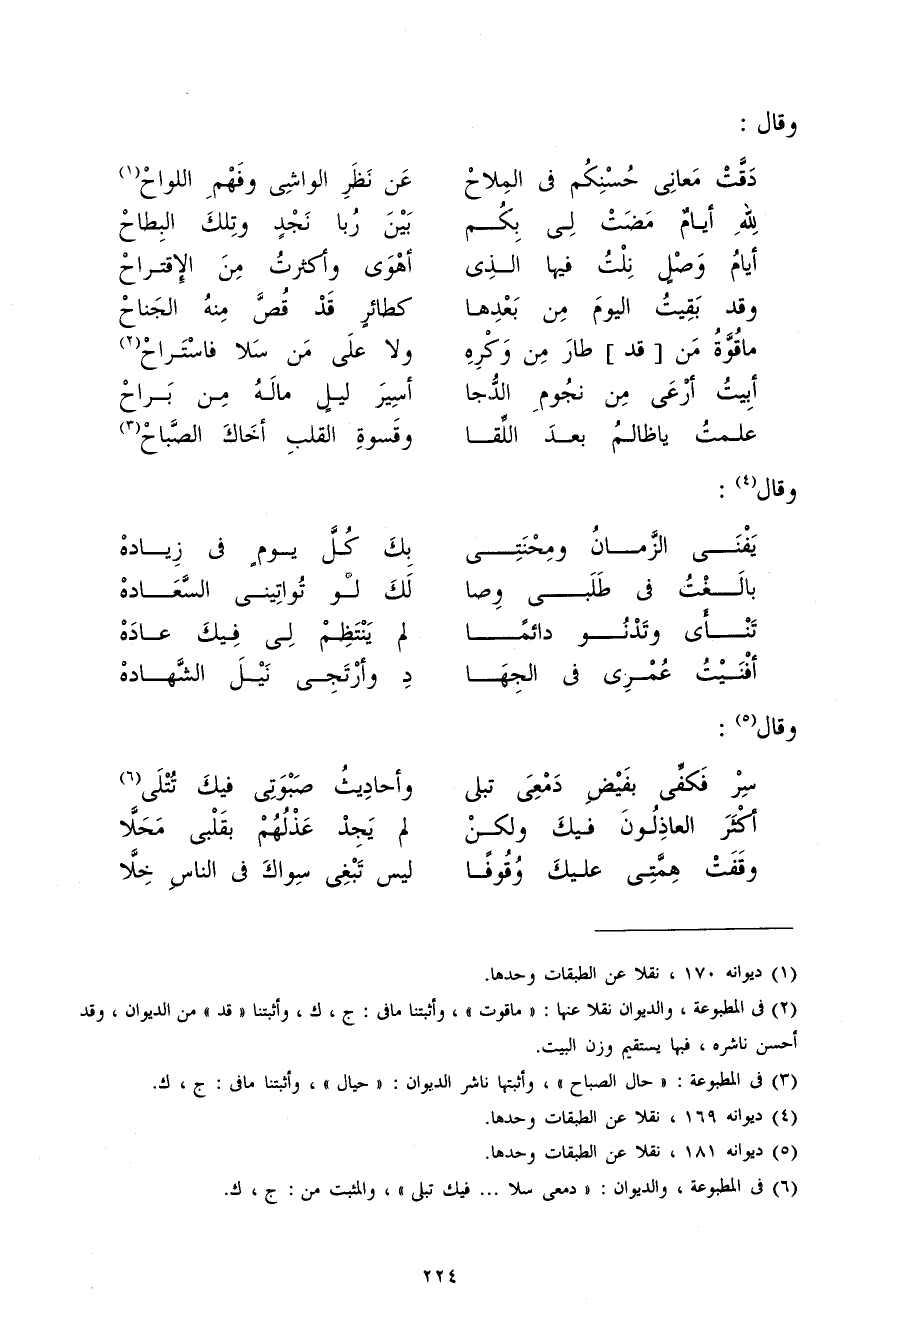 وقال :
دَقَّتْ مَعانِى حُسْنِكُم فى المِلاحْ عَن نَظَرِ الواشِى وفَهْمِ اللواحْ(١)
لِلهِ أيامٌ مَضَتْ لِى بِكُم بَيْنَ رُبا نَجْدٍ وتِلكَ البِطاحْ
أيامُ وَصْلٍ نِلْتُ فيها الذى أهْوَى وأكثرتُ مِنَ الإقتراحْ
وقد بَقِيتُ اليومَ مِن بَعْدِها كطائرٍ قَدْ قُصَّ مِنهُ الجَناحْ
ماقُوَّةُ مَن [ قد ] طارَ مِن وَكْرِهِ ولا علَى مَن سَلا فاسْتَراحْ(٢)
أبِيتُ أرْعَى مِن نجُومِ الدُّجا أسِيرَ ليلٍ مالَهُ مِن بَراحْ
علمتُ ياظالمُ بعدَ اللِّقا وقسوةِ القلبِ أخَاكَ الصَّباحْ(٣)
وقال(٤) :
يَفْنَى الزَّمانُ ومِحْنَتِى بِكَ كُلَّ يومٍ فى زِيادهْ
بالَغْتُ فى طَلَبِى وِصا لَكَ لوْ تُواتِينى السَّعَادهْ
تَنْأَى وتَدْنُو دائمًا لم يَنْتَظِمْ لِى فِيكَ عادَهْ
أفْنَيْتُ عُمْرِى فى الجِهَا دِ وأرْتَجِى نَيْلَ الشَّهادهْ
وقال(٥) :
سِرْ فَكَفِّى بفَيْضِ دَمْعِى تبلى وأحادِيثُ صَبْوَتِى فيكَ تُتْلَى(٦)
أكْثَرَ العاذِلُونَ فيكَ ولكنْ لم يَجِدْ عَذْلُهُمْ بقَلْبِى مَحَلَّا
وقَفَتْ هِمَّتِى عليكَ وُقُوفًا ليس تَبْغِى سِواكَ فى الناسِ خِلَّا
(١) ديوانه ١٧٠ ، نقلا عن الطبقات وحدها.
(٢) فى المطبوعة ، والديوان نقلا عنها : « ماقوت » ، وأثبتنا مافى : ج ، ك ، وأثبتنا « قد » من الديوان ، وقد
أحسن ناشره ، فبها يستقيم وزن البيت.
(٣) فى المطبوعة : « حال الصباح » ، وأثبتها ناشر الديوان : « حيال » ، وأثبتنا مافى : ج ، ك.
(٤) ديوانه ١٦٩ ، نقلا عن الطبقات وحدها.
(٥) ديوانه ١٨١ ، نقلا عن الطبقات وحدها.
(٦) فى المطبوعة ، والديوان : « دمعى سلا ... فيك تبلى » ، والمثبت من : ج ، ك.
٢٢٤